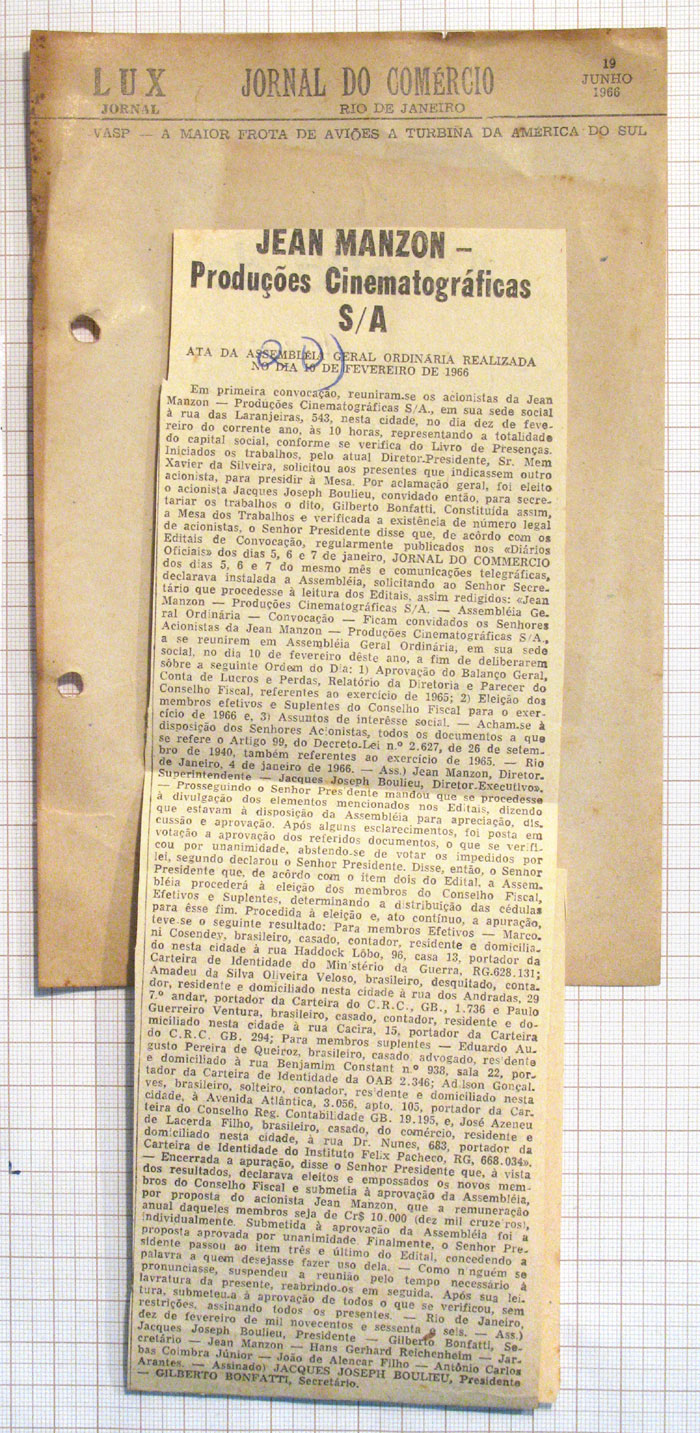 LUX JORNAL DO COMÉRCIO 19
JORNAL RIO DE JANEIRO JUNHO
1966
VASP — A MAIOR FROTA DE AVIÕES A TURBINA DA AMÉRICA DO SUL
JEAN MANZON –
Produções Cinematográficas
S/A
ATA DA ASSEMBLÉIA GERAL ORDINÁRIA REALIZADA
NO DIA 10 DE FEVEREIRO DE 1966
Em primeira convocação, reuniram-se os acionistas da Jean
Manzon — Produções Cinematográficas S/A., em sua sede social
à rua das Laranjeiras, 543, nesta cidade, no dia dez de feve-
reiro do corrente ano, às 10 horas, representando a totalidade
do capital social, conforme se verifica do Livro de Presenças.
Iniciados os trabalhos, pelo atual Diretor-Presidente, Sr. Mem
Xavier da Silveira, solicitou aos presentes que indicassem outro
acionista, para presidir à Mesa. Por aclamação geral, foi eleito
o acionista Jacques Joseph Boulieu, convidado então, para secre-
tariar os trabalhos o dito, Gilberto Bonfatti, Constituída assim,
a Mesa dos Trabalhos e verificada a existência de número legal
de acionistas, o Senhor Presidente disse que, de acôrdo com os
Editais de Convocação, regularmente publicados nos «Diários
Oficiais» dos dias 5, 6 e 7 de janeiro, JORNAL DO COMMERCIO
dos dias 5, 6 e 7 do mesmo mês e comunicações telegráficas,
declarava instalada a Assembléia, solicitando ao Senhor Secre-
tário que procedesse à leitura dos Editais, assim redigidos: «Jean
Manzon — Produções Cinematográficas S/A. — Assembléia Ge-
ral Ordinária — Convocação — Ficam convidados os Senhores
Acionistas da Jean Manzon — Produções Cinematográficas S/A.,
a se reunirem em Assembléia Geral Ordinária, em sua sede
social, no dia 10 de fevereiro dêste ano, a fim de deliberarem
sôbre a seguinte Ordem do Dia: 1) Aprovação do Balanço Geral,
Conta de Lucros e Perdas, Relatório da Diretoria e Parecer do
Conselho Fiscal, referentes ao exercício de 1965; 2) Eleição dos
membros efetivos e Suplentes do Conselho Fiscal para o exer-
cício de 1966 e, 3) Assuntos de interêsse social. — Acham-se à
disposição dos Senhores Acionistas, todos os documentos a que
se refere o Artigo 99, do Decreto-Lei n.º 2.627, de 26 de setem-
bro de 1940, também referentes ao exercício de 1965. — Rio
de Janeiro, 4 de janeiro de 1966. — Ass.) Jean Manzon, Diretor-
Superintendente — Jacques Joseph Boulieu, Diretor-Executivo».
— Prosseguindo o Senhor Presidente mandou que se procedesse
à divulgação dos elementos mencionados nos Editais, dizendo
que estavam à disposição da Assembléia para apreciação, dis-
cussão e aprovação. Após alguns esclarecimentos, foi posta em
votação a aprovação dos referidos documentos, o que se verifi-
cou por unanimidade, abstendo-se de votar os impedidos por
lei, segundo declarou o Senhor Presidente. Disse, então, o Senhor
Presidente que, de acôrdo com o item dois do Edital, a Assem-
bléia procederá à eleição dos membros do Conselho Fiscal,
Efetivos e Suplentes, determinando a distribuição das cédulas
para êsse fim. Procedida à eleição e, ato contínuo, a apuração,
teve-se o seguinte resultado: Para membros Efetivos — Marco-
ni Cosendey, brasileiro, casado, contador, residente e domicilia-
do nesta cidade à rua Haddock Lôbo, 96, casa 13, portador da
Carteira de Identidade do Ministério da Guerra, RG.628.131;
Amadeu da Silva Oliveira Veloso, brasileiro, desquitado, conta-
dor, residente e domiciliado nesta cidade à rua dos Andradas, 29
7.º andar, portador da Carteira do C.R.C., GB., 1.736 e Paulo
Guerreiro Ventura, brasileiro, casado, contador, residente e do-
miciliado nesta cidade à rua Cacira, 15, portador da Carteira
do C.R.C. GB. 294; Para membros suplentes — Eduardo Au-
gusto Pereira de Queiroz, brasileiro, casado, advogado, residente
e domiciliado à rua Benjamim Constant n.º 938, sala 22, por-
tador da Carteira de Identidade da OAB 2.346; Adilson Gonçal-
ves, brasileiro, solteiro, contador, residente e domiciliado nesta
cidade, à Avenida Atlântica, 3.056, apto. 105, portador da Car-
teira do Conselho Reg. Contabilidade GB. 19.195, e, José Azeneu
de Lacerda Filho, brasileiro, casado, do comércio, residente e
domiciliado nesta cidade, à rua Dr. Nunes, 683, portador da
Carteira de Identidade do Instituto Felix Pacheco, RG, 668.034».
— Encerrada a apuração, disse o Senhor Presidente que, à vista
dos resultados, declarava eleitos e empossados os novos mem-
bros do Conselho Fiscal e submetia à aprovação da Assembléia,
por proposta do acionista Jean Manzon, que a remuneração
anual daqueles membros seja de Cr$ 10.000 (dez mil cruzeiros),
individualmente. Submetida à aprovação da Assembléia foi a
proposta aprovada por unanimidade. Finalmente, o Senhor Pre-
sidente passou ao item três e último do Edital, concedendo a
palavra a quem desejasse fazer uso dela. — Como ninguém se
pronunciasse, suspendeu a reunião pelo tempo necessário à
lavratura da presente, reabrindo-os em seguida. Após sua lei-
tura, submeteu-a à aprovação de todos o que se verificou, sem
restrições, assinando todos os presentes. — Rio de Janeiro,
dez de fevereiro de mil novecentos e sessenta e seis. — Ass.)
Jacques Joseph Boulieu, Presidente — Gilberto Bonfatti, Se-
cretário — Jean Manzon — Hans Gerhard Reichenheim — Jar-
bas Coimbra Júnior — João de Alencar Filho — Antônio Carlos
Arantes. — Assinado) JACQUES JOSEPH BOULIEU, Presidente
— GILBERTO BONFATTI, Secretário.